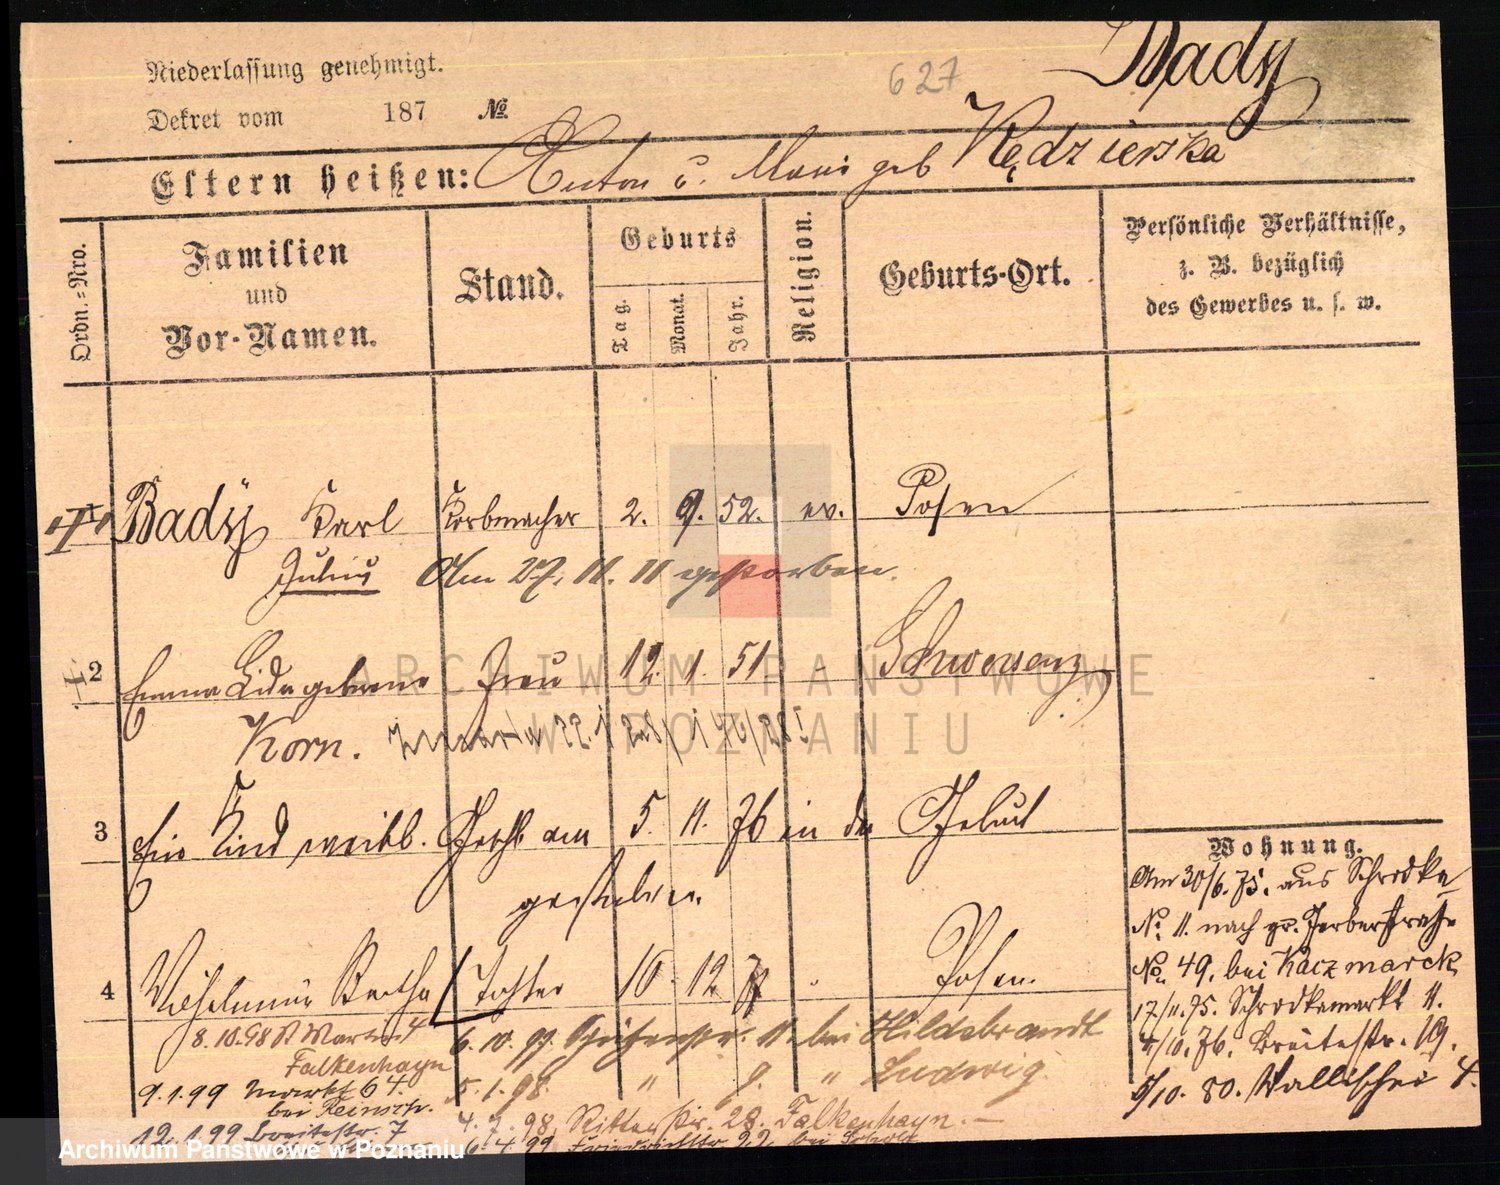 Niederlassung genehmigt.
Dekret vom 187 №
627
Bady
Eltern heißen: Anton u. Marie geb Kędzierska
Ordn.-Nro.
Familien
und
Vor-Namen.
Stand.
Geburts
Tag.
Monat.
Jahr.
Religion.
Geburts-Ort.
Persönliche Verhältnisse,
z. B. bezüglich
des Gewerbes u. s. w.
Bady Karl Korbmacher 2. 9. 52. ev. Posen
Julius Am 27. 11. 11 gestorben.
2 Emma Lida geborene Frau 12. 1. 51 Schwersenz
Korn.
3 Ein Kind weibl. Geschl. am 5. 11. 76 in der Geburt
gestorben.
4 Wilhelmine Bertha Tochter 10. 12. Posen.
8.10.98 St Martin 4
Falkenhayn
9.1.99 Markt 64.
bei Reinsch.
12.1.99 Breitestr. 7
6.10.97. 11. bei Hildebrandt
5.1.98. " 9. " Ludwig
4.7.98. Ritterstr. 28. Falkenhayn.
6.4.99 22 bei
Wohnung.
Am 30/6.75. aus Schrodka
No. 11. nach gr. Gerberstraße
No. 49. bei Kaczmarek
17/11.75. Schrodkamarkt 11.
4/10.76. Breitestr. 19.
5/10.80. Wallischei 4.
ARCHIWUM PAŃSTWOWE
W POZNANIU
Archiwum Państwowe w Poznaniu